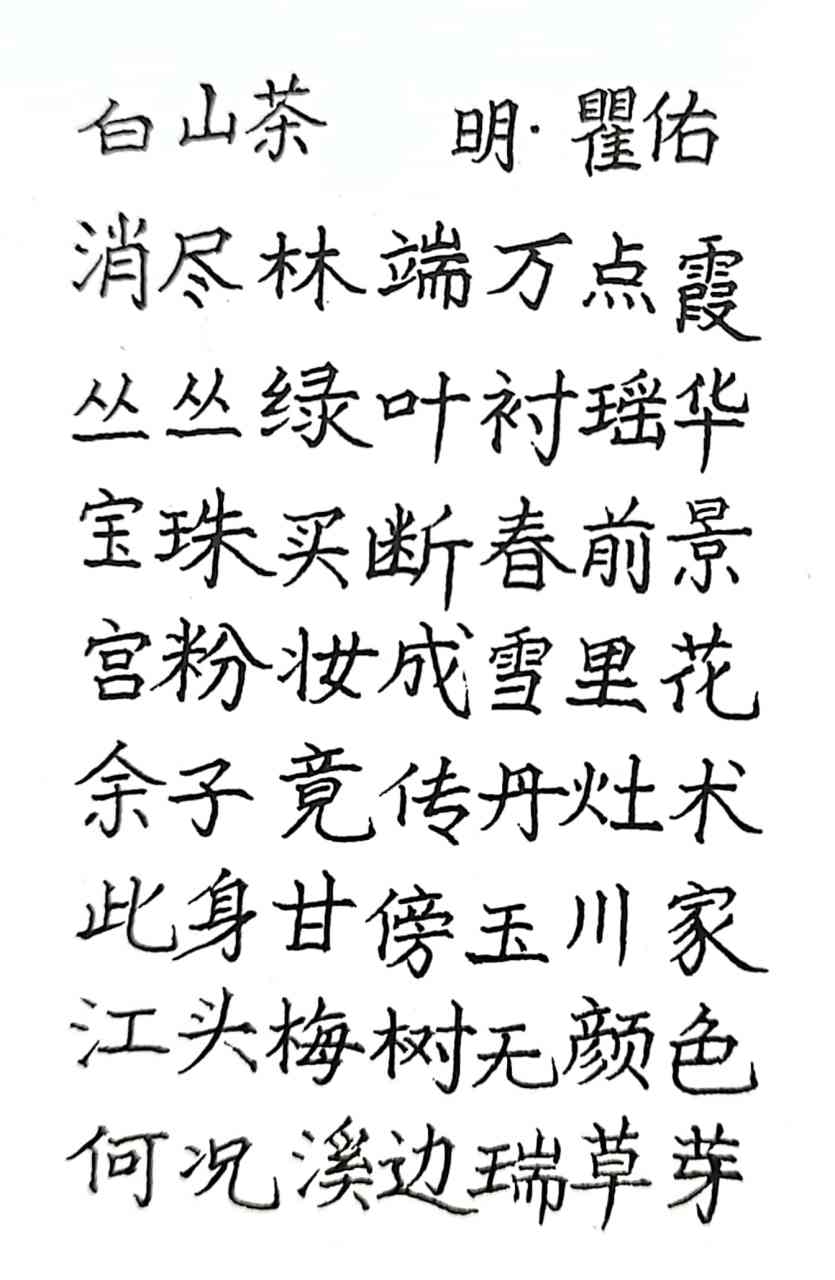 白山茶 明·瞿佑
消尽林端万点霞
丛丛绿叶衬瑶华
宝珠买断春前景
宫粉妆成雪里花
余子竟传丹灶术
此身甘傍玉川家
江头梅树无颜色
何况溪边瑞草芽